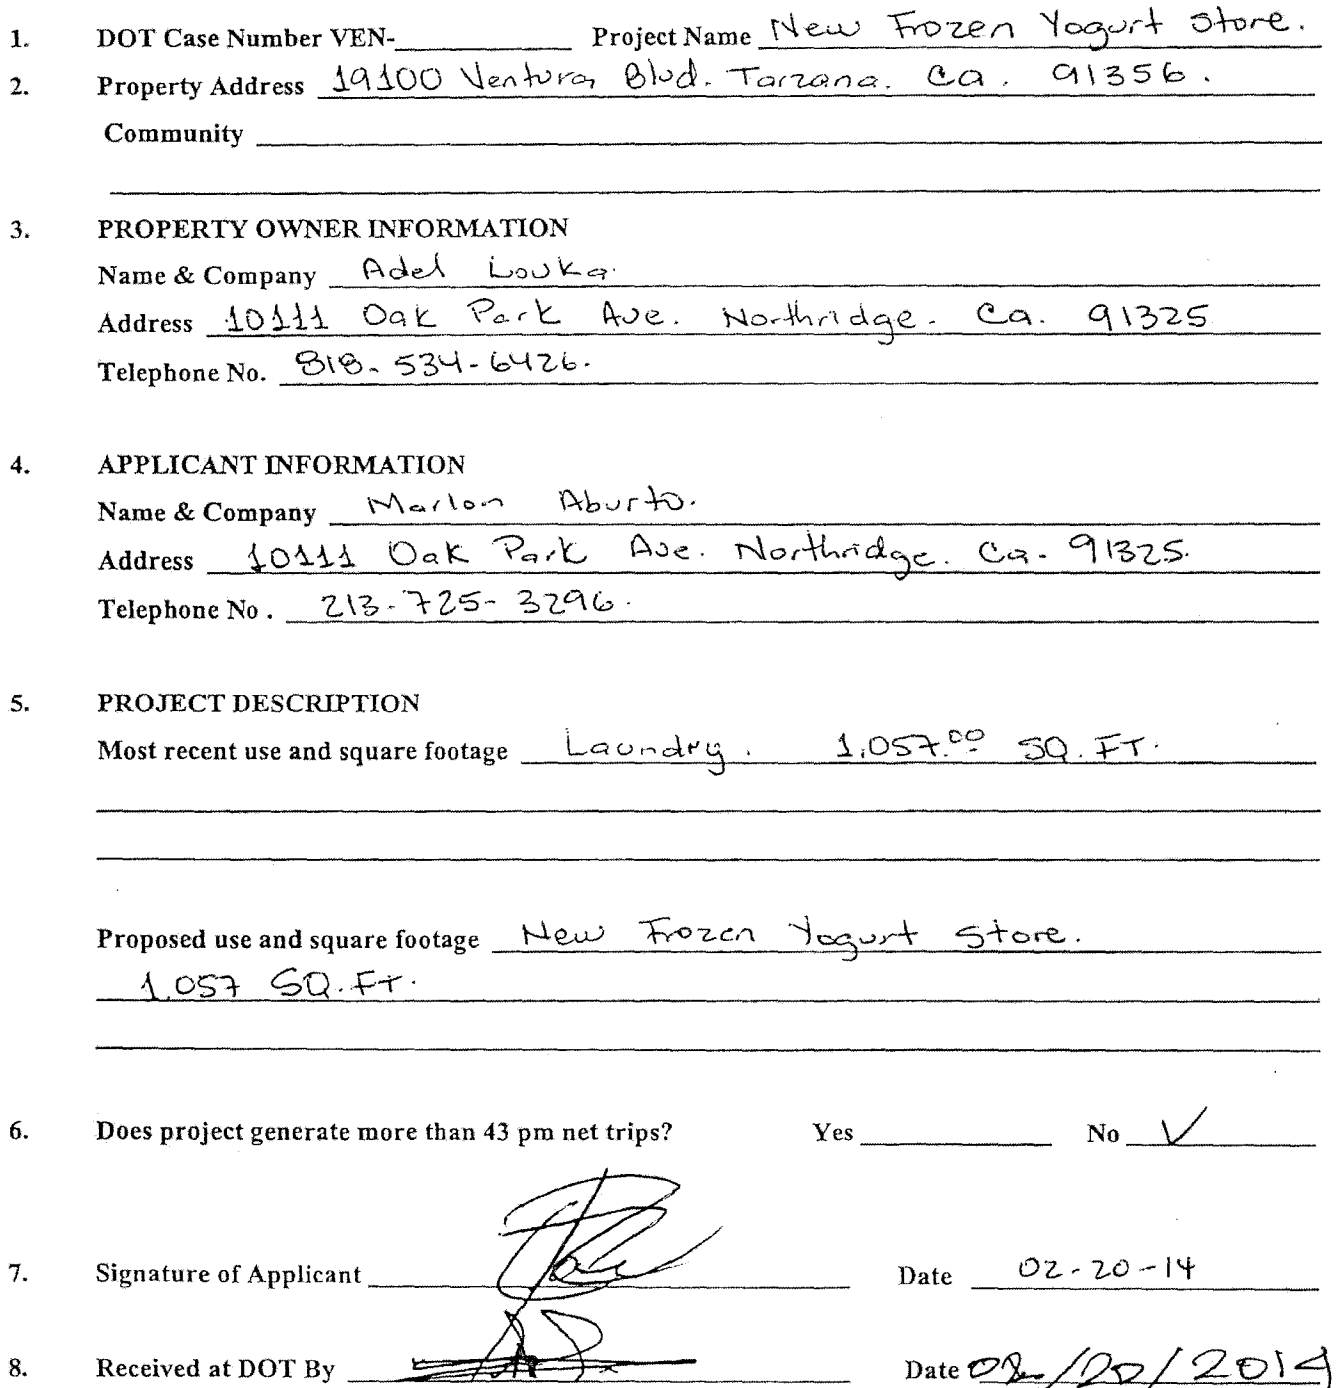 1. DOT Case Number VEN-__________ Project Name New Frozen Yogurt Store.
2. Property Address 19100 Ventura Blvd. Tarzana. Ca. 91356.
Community
3. PROPERTY OWNER INFORMATION
Name & Company Adel Louka.
Address 10111 Oak Park Ave. Northridge. Ca. 91325
Telephone No. 818-534-6426.
4. APPLICANT INFORMATION
Name & Company Marlon Aburto.
Address 10111 Oak Park Ave. Northridge. Ca. 91325.
Telephone No. 213-725-3296.
5. PROJECT DESCRIPTION
Most recent use and square footage Laundry. 1,057.00 SQ. FT.
Proposed use and square footage New Frozen Yogurt Store.
1,057 SQ.FT.
6. Does project generate more than 43 pm net trips? Yes ________ No ✓
7. Signature of Applicant Date 02-20-14
8. Received at DOT By Date 02/20/2014